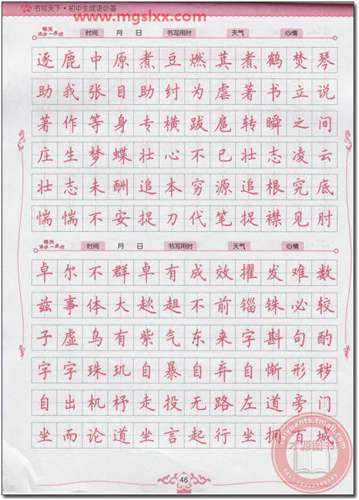 书写天下·初中生成语必备
www.mgslxx.com
每天进步一点点 时间 月 日 书写用时 天气 心情
逐鹿中原煮豆燃萁煮鹤焚琴
助我张目助纣为虐著书立说
著作等身专横跋扈转瞬之间
庄生梦蝶壮心不已壮志凌云
壮志未酬追本穷源追根究底
惴惴不安捉刀代笔捉襟见肘
每天进步一点点 时间 月 日 书写用时 天气 心情
卓尔不群卓有成效擢发难数
兹事体大趑趄不前锱铢必较
子虚乌有紫气东来字斟句酌
字字珠玑自暴自弃自惭形秽
自出机杼走投无路左道旁门
坐而论道坐言起行坐拥百城
46